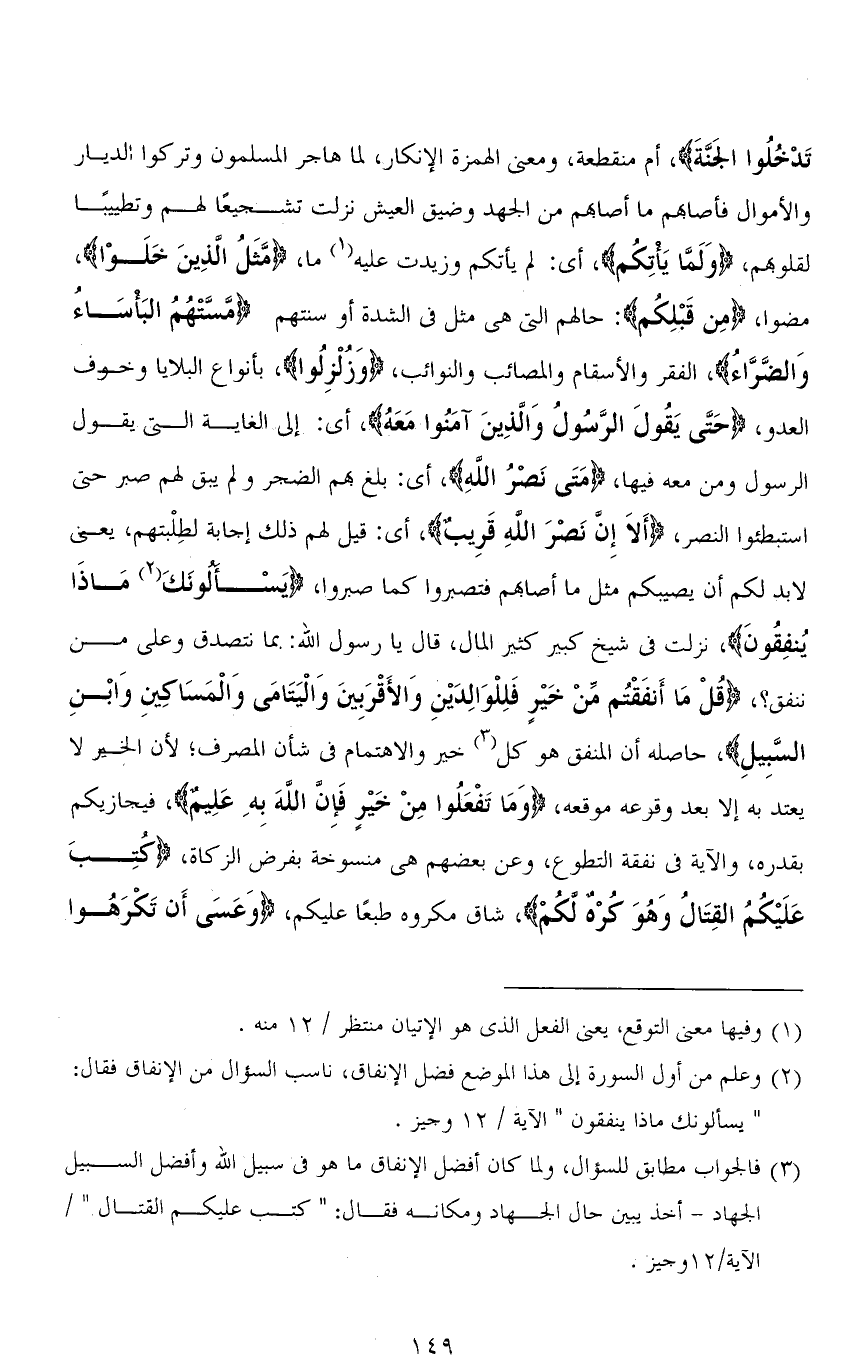 تَدْخُلُوا الجَنَّةَ﴾، أم منقطعة، ومعنى الهمزة الإنكار، لما هاجر المسلمون وتركوا الديار
والأموال فأصاهم ما أصاهم من الجهد وضيق العيش نزلت تشجيعًا لهم وتطييبًا
لقلوهم، ﴿وَلَمَّا يَأْتِكُم﴾، أى: لم يأتكم وزيدت عليه(١) ما، ﴿مَّثَلُ الَّذِينَ خَلَوْا﴾،
مضوا، ﴿مِن قَبْلِكُم﴾: حالهم التى هى مثل فى الشدة أو سنتهم ﴿مَّسَّتْهُمُ البَأْسَاءُ
وَالضَّرَّاءُ﴾، الفقر والأسقام والمصائب والنوائب، ﴿وَزُلْزِلُوا﴾، بأنواع البلايا وخوف
العدو، ﴿حَتَّى يَقُولَ الرَّسُولُ وَالَّذِينَ آمَنُوا مَعَهُ﴾، أى: إلى الغاية التى يقول
الرسول ومن معه فيها، ﴿مَتَى نَصْرُ اللَّهِ﴾، أى: بلغ هم الضجر و لم يبق لهم صبر حتى
استبطئوا النصر، ﴿أَلاَ إِنَّ نَصْرَ اللَّهِ قَرِيبٌ﴾، أى: قيل لهم ذلك إجابة لطِلْبتهم، يعنى
لابد لكم أن يصيبكم مثل ما أصاهم فتصبروا كما صبروا، ﴿يَسْأَلُونَكَ(٢) مَاذَا
يُنفِقُونَ﴾، نزلت فى شيخ كبير كثير المال، قال يا رسول الله: بما نتصدق وعلى من
ننفق؟، ﴿قُلْ مَا أَنفَقْتُم مِّنْ خَيْرٍ فَلِلْوَالِدَيْنِ وَالأَقْرَبِينَ وَالْيَتَامَى وَالْمَسَاكِينِ وَابْنِ
السَّبِيلِ﴾، حاصله أن المنفق هو كل(٣) خير والاهتمام فى شأن المصرف؛ لأن الخير لا
يعتد به إلا بعد وقرعه موقعه، ﴿وَمَا تَفْعَلُوا مِنْ خَيْرٍ فَإِنَّ اللَّهَ بِهِ عَلِيمٌ﴾، فيجازيكم
بقدره، والآية فى نفقة التطوع، وعن بعضهم هى منسوخة بفرض الزكاة، ﴿كُتِبَ
عَلَيْكُمُ القِتَالُ وَهُوَ كُرْهٌ لَّكُمْ﴾، شاق مكروه طبعًا عليكم، ﴿وَعَسَى أَن تَكْرَهُوا
(١) وفيها معنى التوقع، يعنى الفعل الذى هو الإتيان منتظر / ١٢ منه .
(٢) وعلم من أول السورة إلى هذا الموضع فضل الإنفاق، ناسب السؤال من الإنفاق فقال:
" يسألونك ماذا ينفقون " الآية / ١٢ وجيز .
(٣) فالجواب مطابق للسؤال، ولما كان أفضل الإنفاق ما هو فى سبيل الله وأفضل السبيل
الجهاد – أخذ يبين حال الجهاد ومكانه فقال: " كتب عليكم القتال " /
الآية/١٢وجيز .
١٤٩